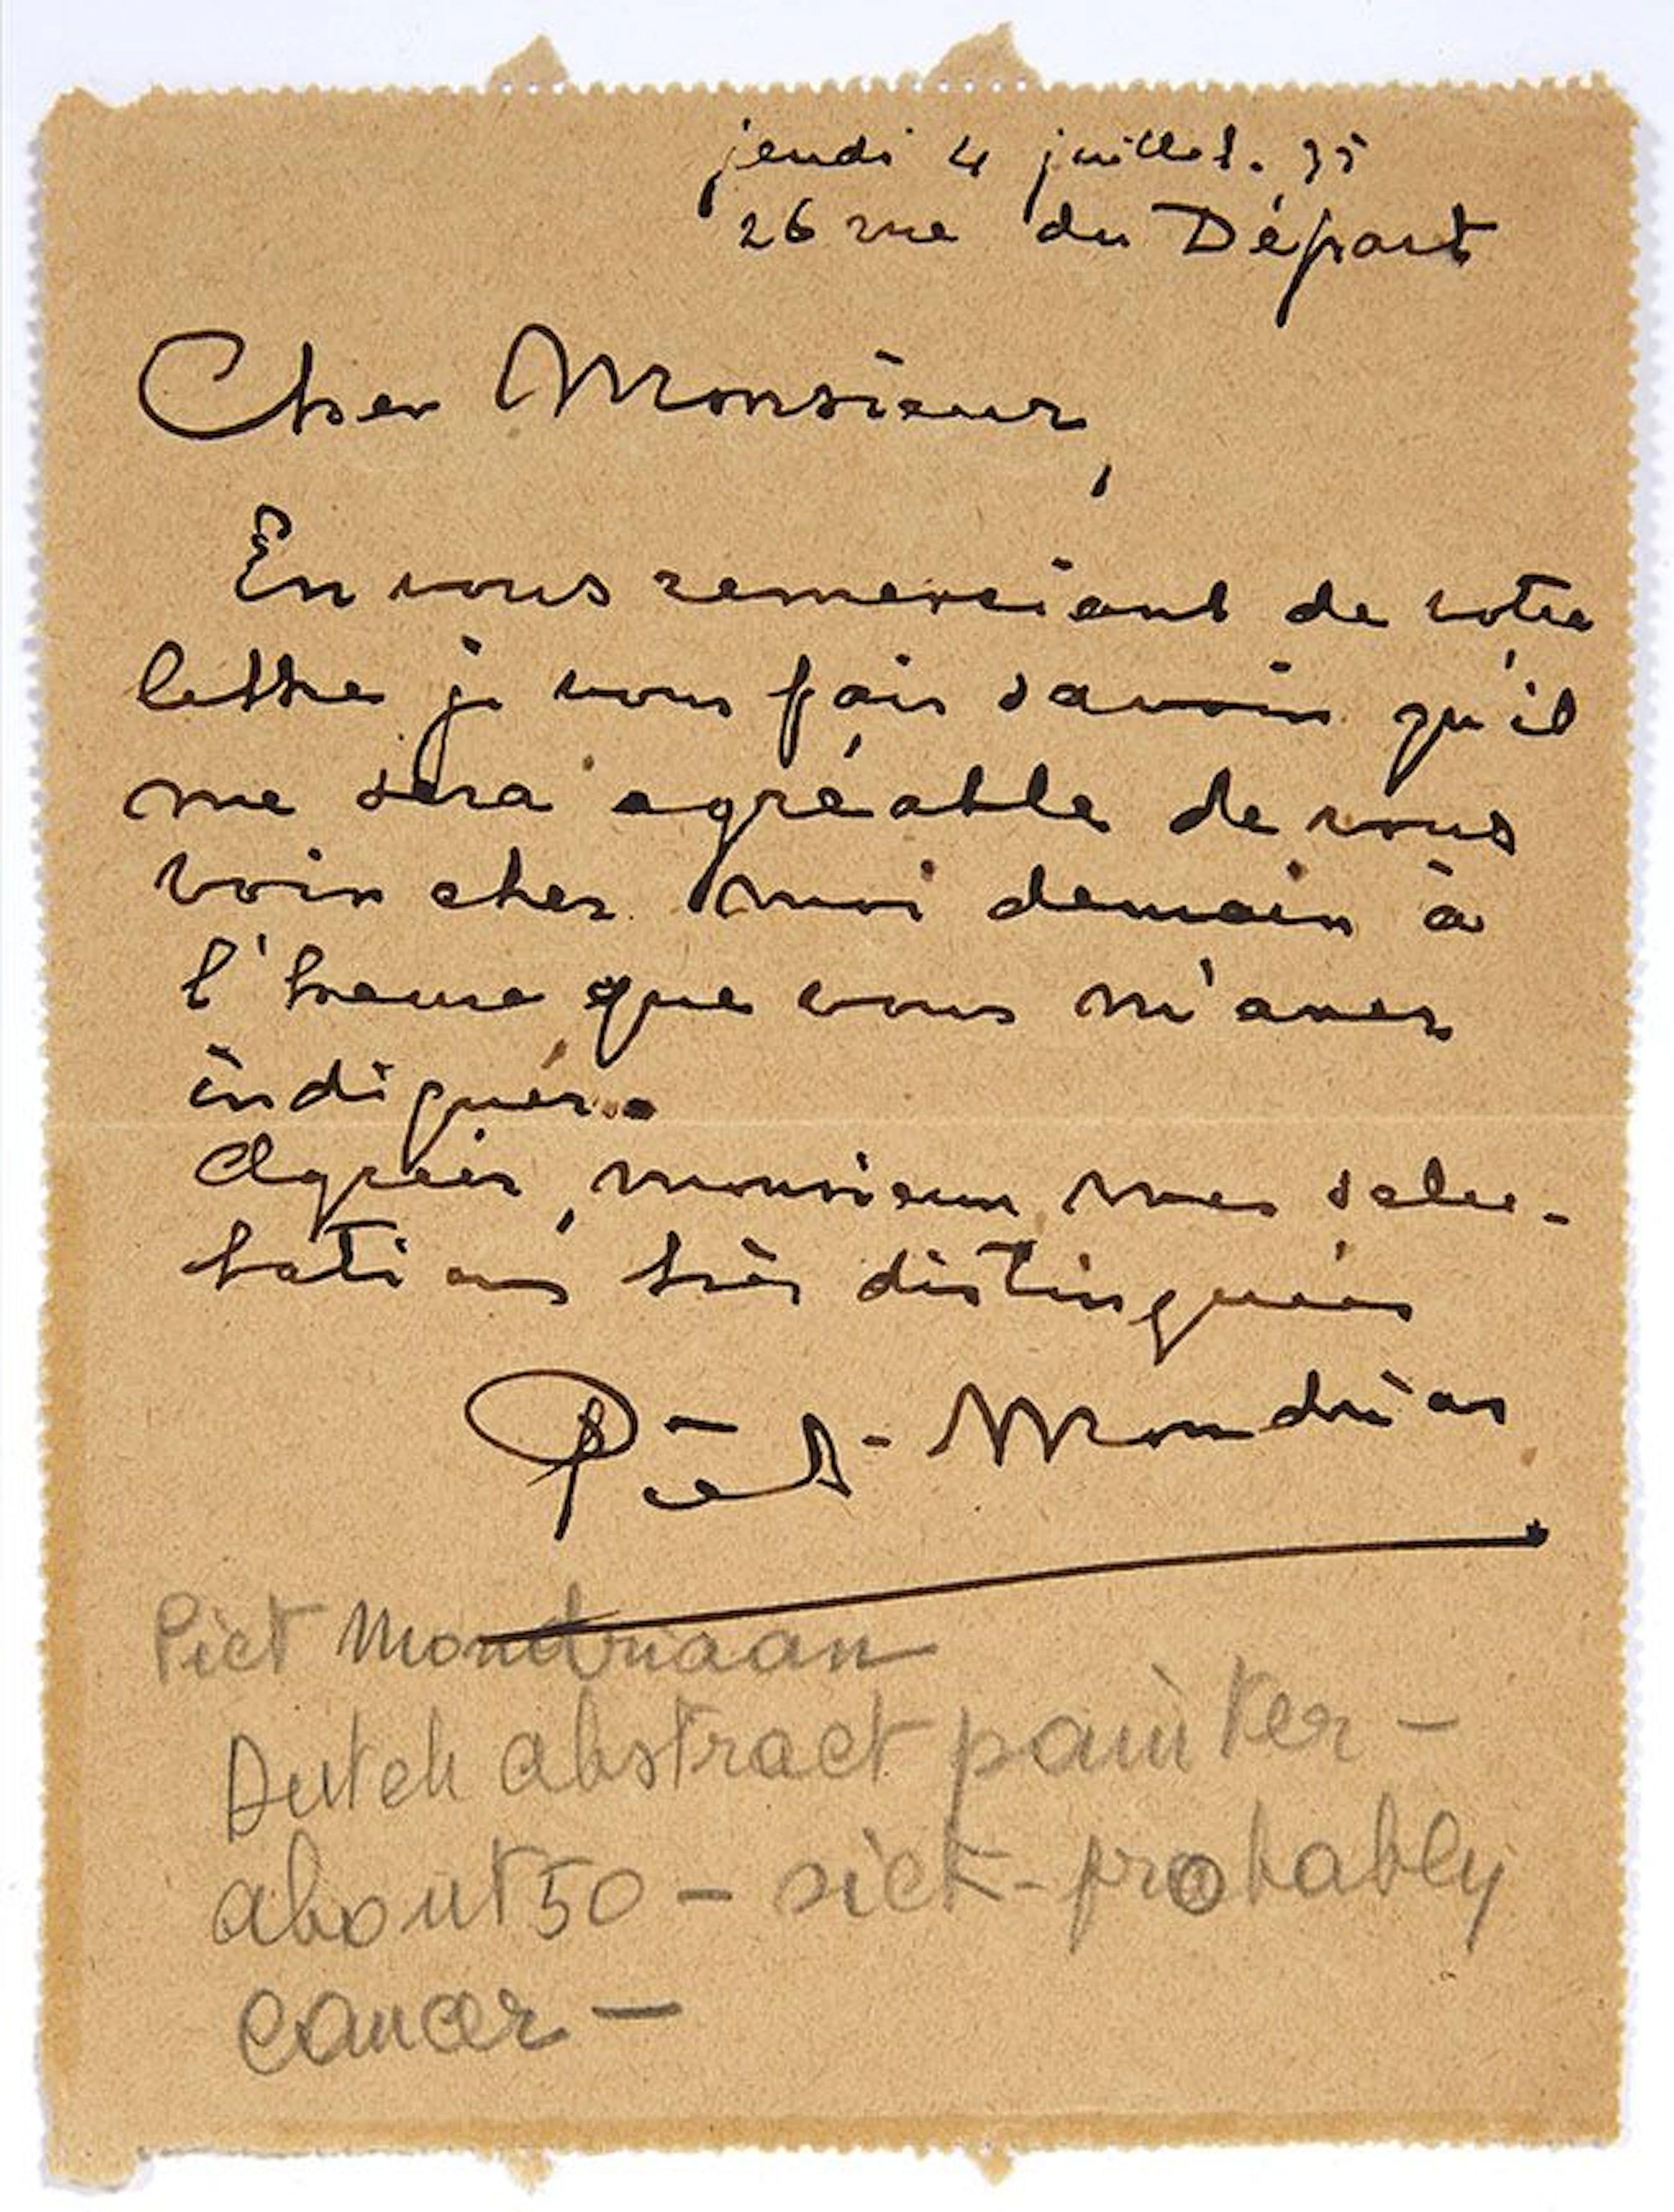 jeudi 4 juillet. 35
26 rue du Départ
Cher Monsieur,
En vous remerciant de votre
lettre je vous fais savoir qu'il
me sera agréable de vous
voir chez moi demain à
l'heure que vous m'avez
indiquéz.
Agréez, monsieur mes salu-
tations très distinguées
Piet-Mondrian
Piet Mondriaan
Dutch abstract painter -
about 50 - sick - probably
cancer -